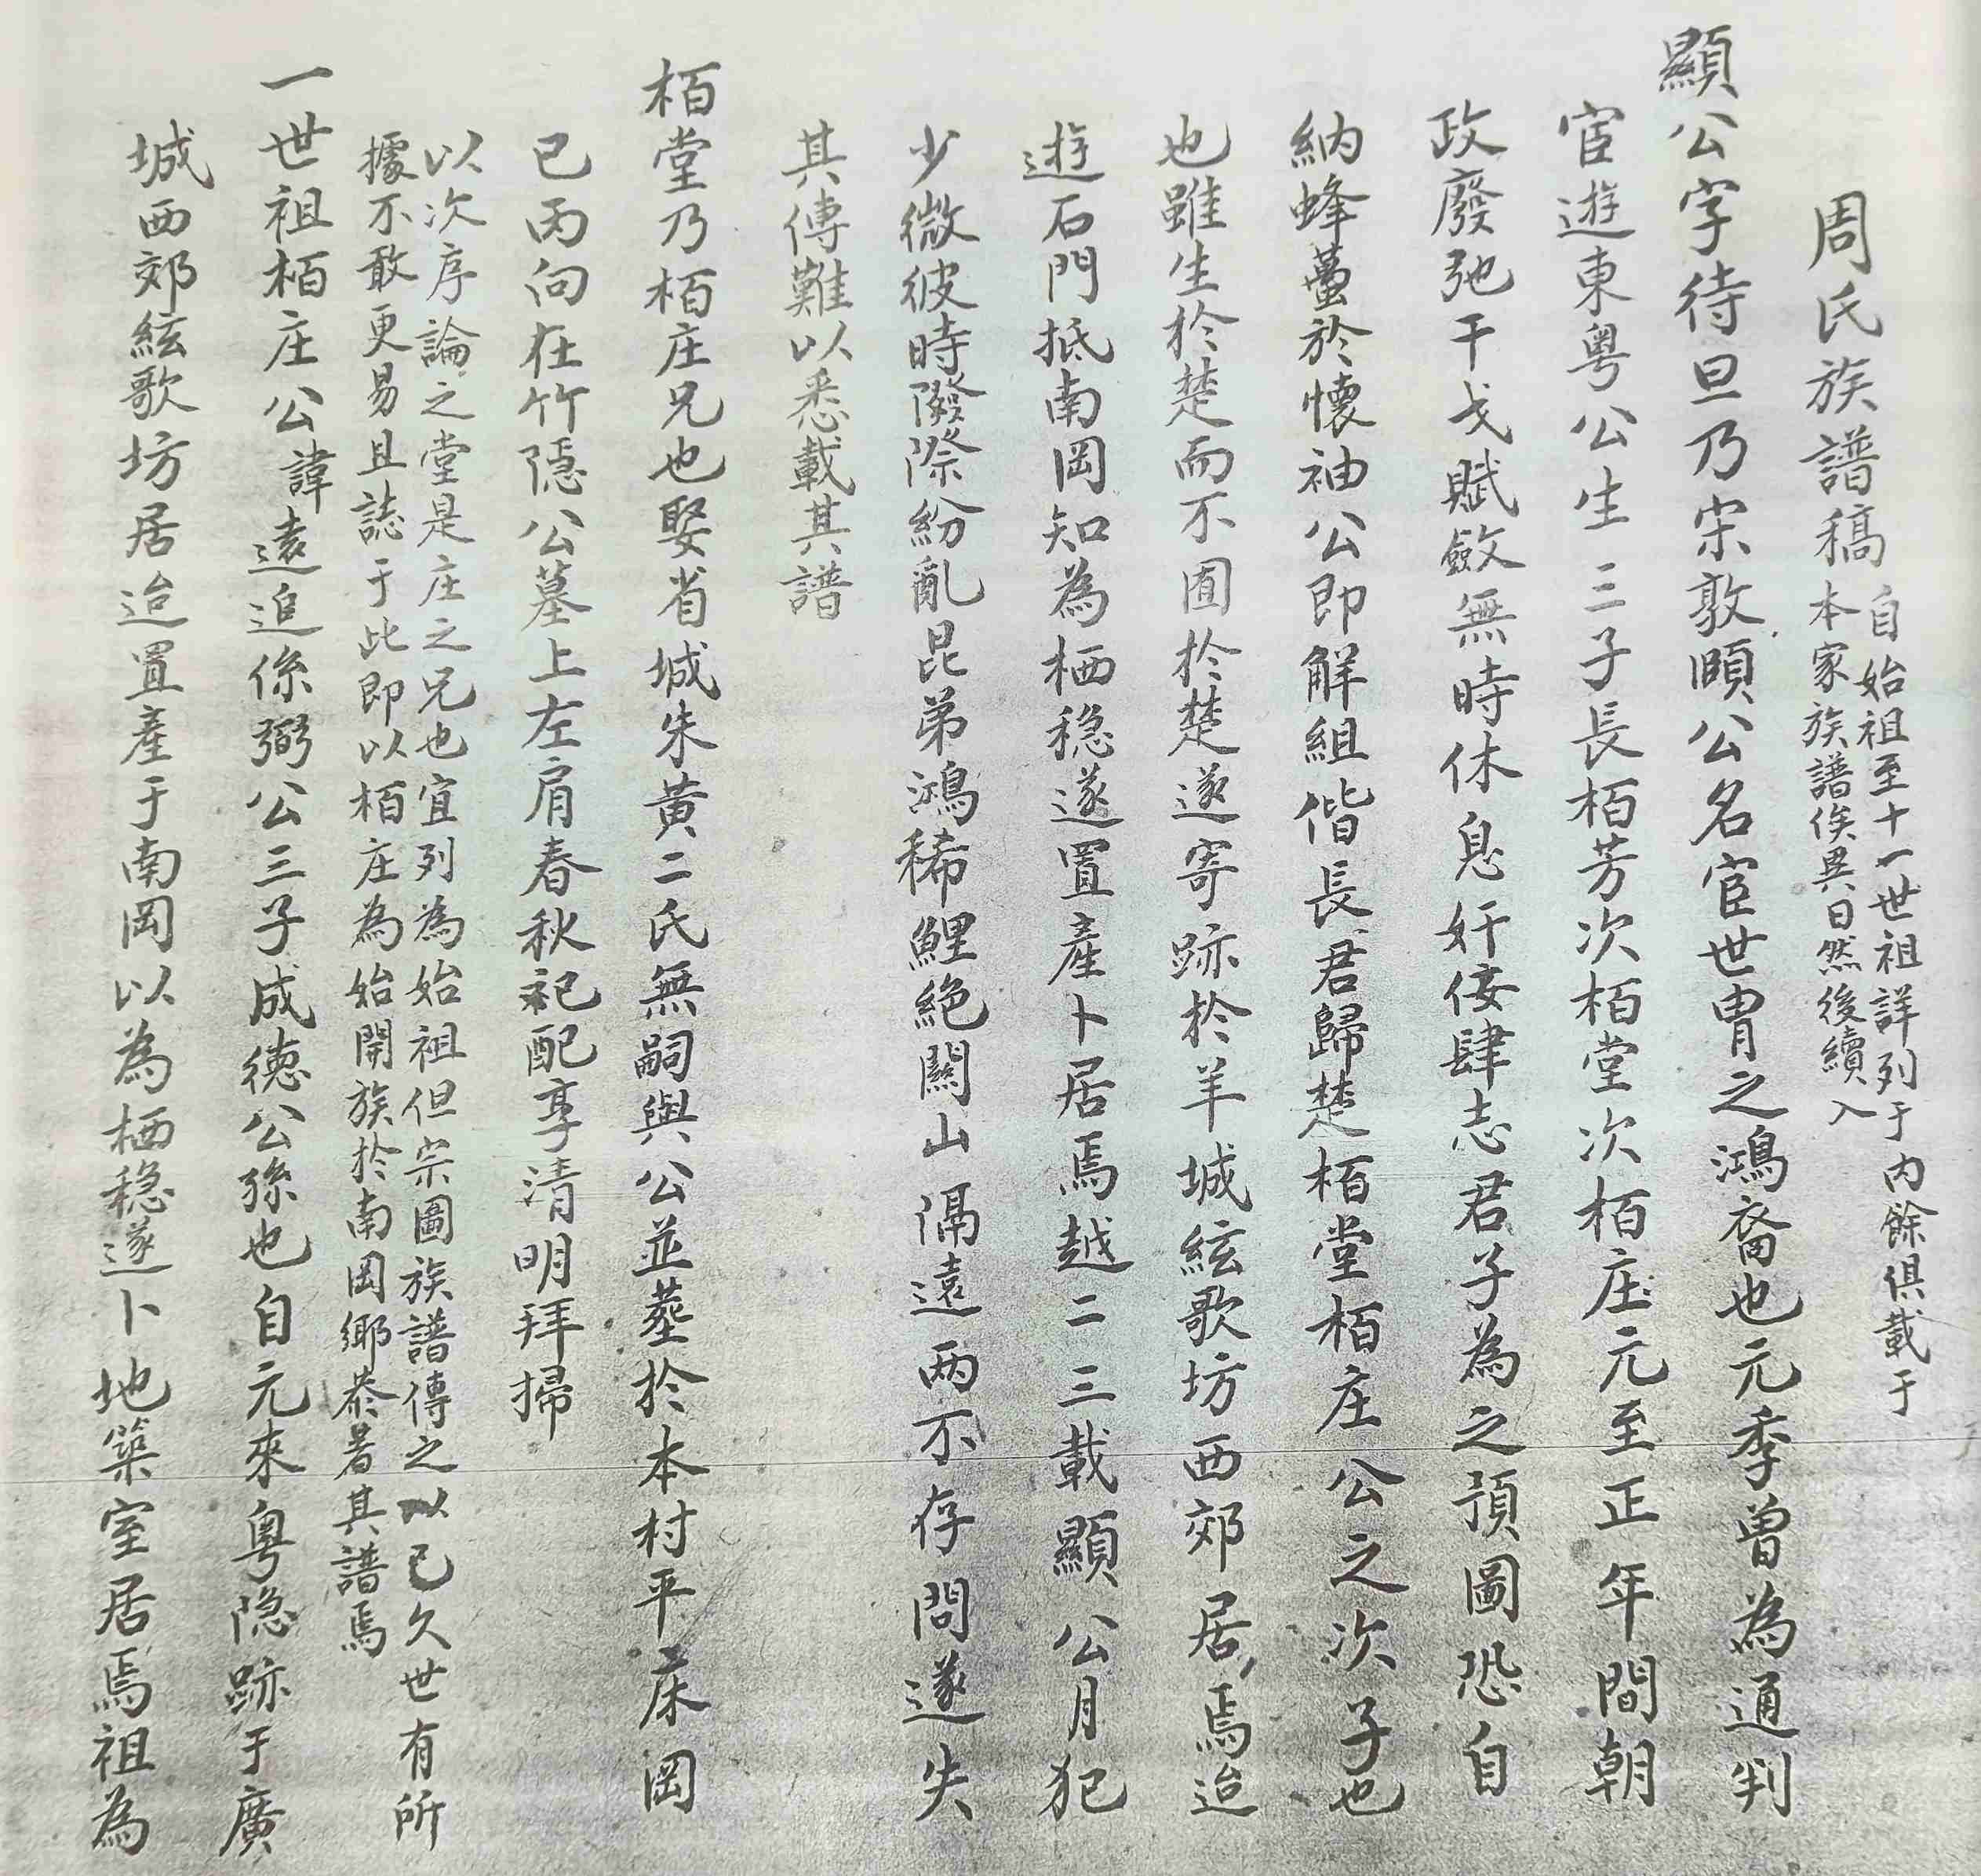 周氏族譜稿
自始祖至十一世祖詳列于内餘俱載于
本家族譜俟異日然後續入
顯公字待旦乃宋敦頤公名宦世胄之鴻裔也元季曾為通判
宦遊東粵公生三子長栢芳次栢堂次栢庄元至正年間朝
政廢弛干戈賦斂無時休息奸佞肆志君子為之預圖恐自
納蜂蠆於懷袖公即解組偕長君歸楚栢堂栢庄公之次子也
也雖生於楚而不囿於楚遂寄跡於羊城絃歌坊西郊居焉迨
遊石門抵南岡知為栖穏遂置產卜居焉越二三載顯公月犯
少微彼時際紛亂昆弟鴻稀鯉絕關山隔遠两不存問遂失
其傳難以悉載其譜
栢堂乃栢庄兄也娶省城朱黃二氏無嗣與公並塟於本村平床岡
已丙向在竹隱公墓上左肩春秋祀配享清明拜掃
以次序論之堂是庄之兄也宜列為始祖但宗圖族譜傳之以已久世有所
據不敢更易且誌于此即以栢庄為始開族於南岡鄉恭著其譜焉
一世祖栢庄公諱遠追係弼公三子成德公孫也自元來粵隐跡于廣
城西郊絃歌坊居迨置產于南岡以為栖穏遂卜地築室居焉祖為